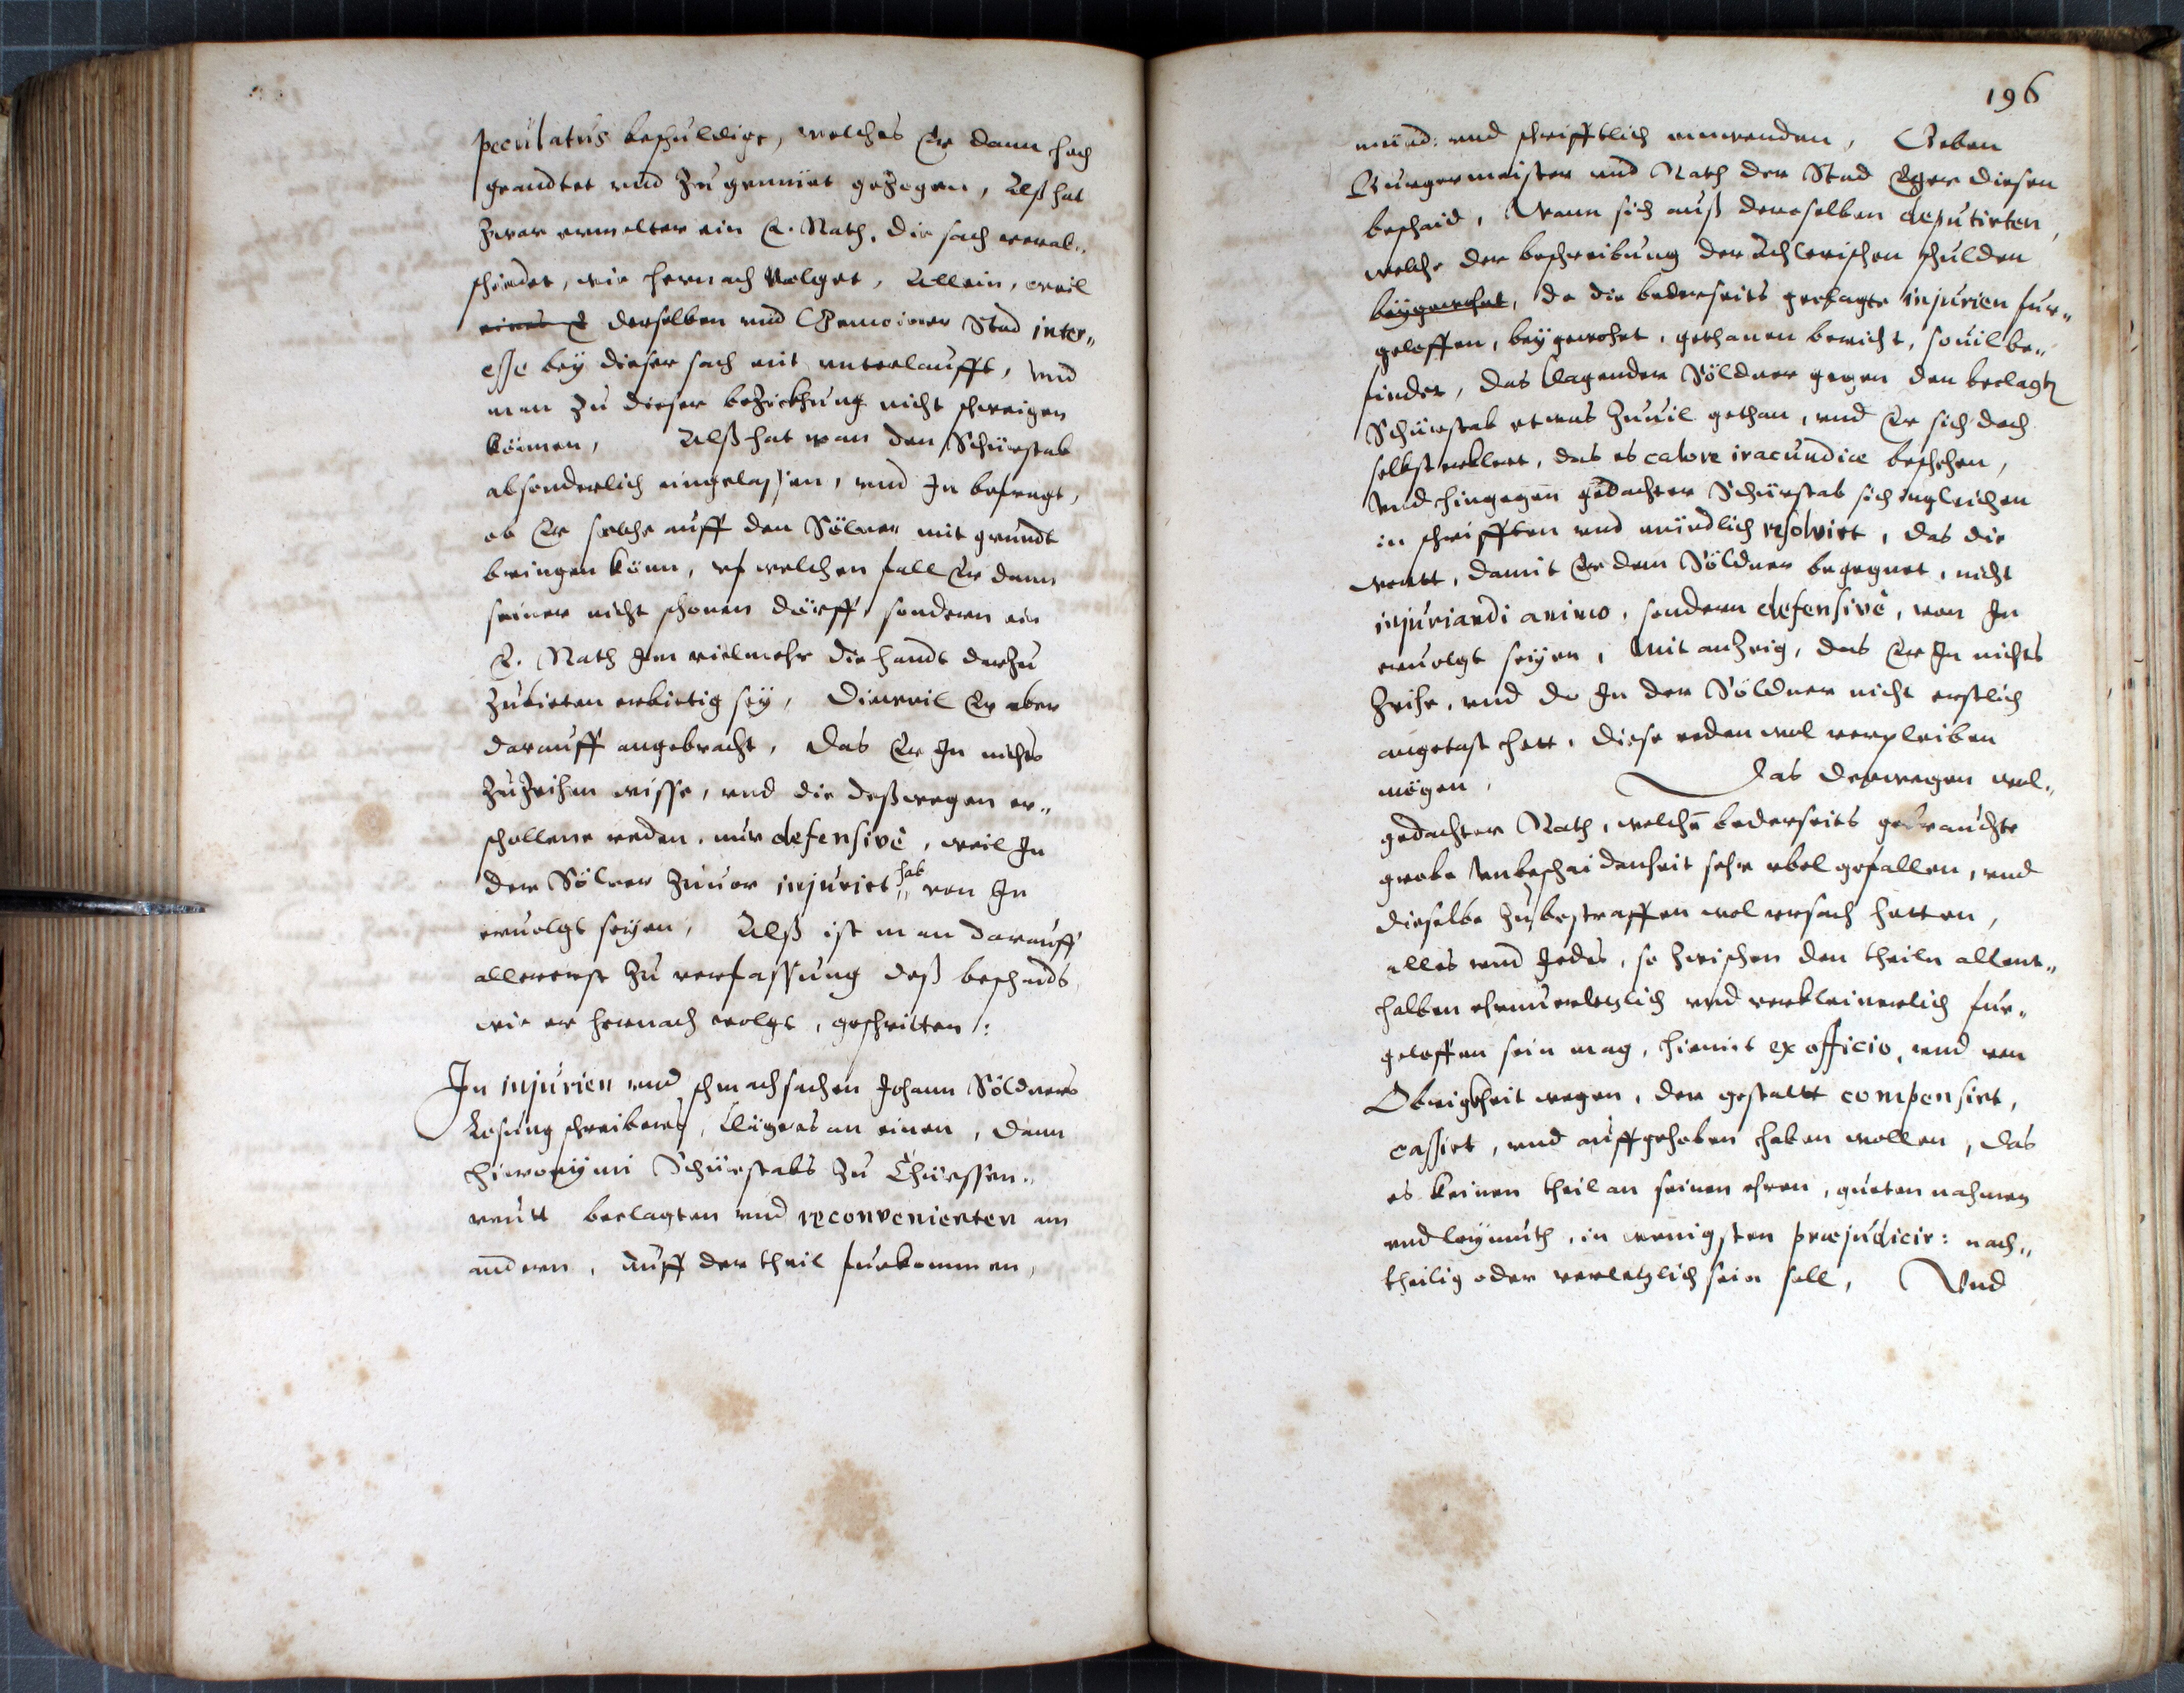 peculatus beschuldigt, welches Er dann hoch
geandtet vnd zu gemüet gezogen, Alß hat
zwar ermelter ein E. Rath, die sach verab„
schiedet, wie hernach volget, Allein, weil
eines E derselben vnd Gemeiner Stad inter„
esse bey dieser sach mit unterlaufft, vnd
man zu dieser bezickhung nicht schweigen
können, Alß hat man den Schürstab
absonderlich eingelassen, vnd In befragt,
ob Er solche auff den Sölner mit grundt
bringen könn, vf welchen fall Er dann
seiner nicht schonen dürff, sondern ein
E. Rath Jm vielmehr die handt darzu
zubieten erbietig sey, Dieweil Er aber
darauff angebracht, das Er In nichts
zuzeihen wisse, vnd die deßwegen er„
schollene reden, nur defensivè, weil In
der Sölner zuuor injuriet hab von Im
eruolgt seyen, Alß ist man darauff
allererst zu verfassung deß beschaids,
wie er hernach volgt, geschritten:
In injurien vnd schmachsachen Johann Söldners
Losungschreibers, Clägers an einen, dann
Hieronÿmi Schürstabs zu Thürssen„
reutt beclagten vnd reconvenienten am
andern, Auff der theil furkommen,
196
münd: vnd schrifftlich einwenden, Geben
Burgermeister vnd Rath der Stad Eger diesen
beschaid, Wann sich auß derselben deputirten,
welche der beschreibung der Achlerischen schulden
beygewohnt, da die bederseits geclagte injurien fur„
geloffen, beygewohnt, gethanen bericht, souil be„
findet, das Clagender Söldner gegen den beclagten
Schürstab etwas zuuil gethan, vnd Er sich doch
selbst erklert, das es calore iracundiæ beschehen,
Vnd hingegen gedachter Schürstab sich ingleichen
in schrifften vnd mündlich resolvirt, das die
wortt, damit Er dem Söldner begegnet, nicht
injuriandi animo, sondern defensivè, von Im
eruolgt seyen, Mit anzeig, das Er In nichts
zeihe, vnd do In der Söldner nicht erstlich
angetast hett, diese reden wol verpleiben
mögen, Das derwegen wol„
gedachter Rath, welchem bederseits gebrauchte
grobe Vnbeschaidenheit sehr vbel gefallen, vnd
dieselbe zubestraffen wol vrsach hetten,
alles vnd Jedes, so zwischen den theiln allent„
halben ehrnuerletzlich vnd verkleinerlich fur„
geloffen sein mag, hiemit ex officio, vnd von
Obrigkheit wegen, der gestaltt compensirt,
cassirt, vnd auffgehoben haben wollen, das
es keinen theil an seinen ehren, gueten nahmen
vnd leymuth, im wenigsten præjudicir: nach„
theilig oder verletzlich sein soll, Vnd